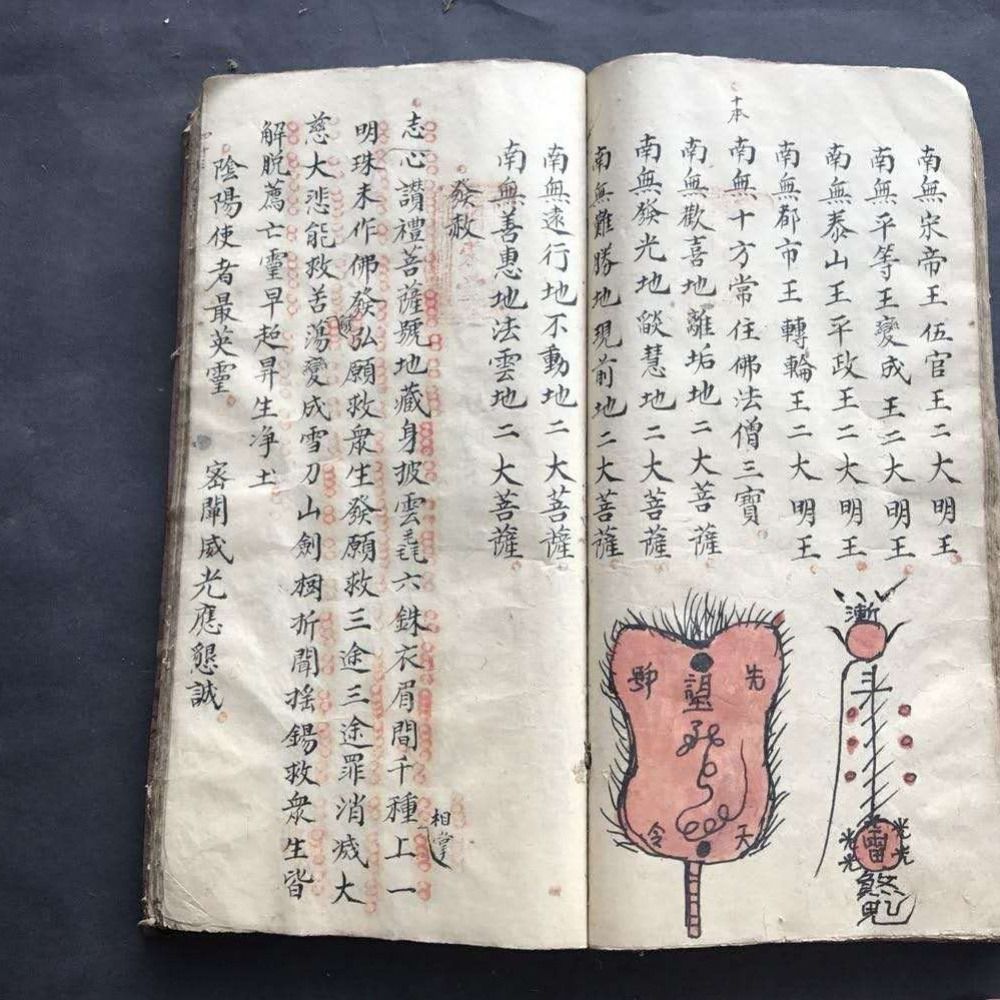 南無宋帝王伍官王二大明王
南無平等王變成王二大明王
南無泰山王平政王二大明王
南無都市王轉輪王二大明王
十本
南無十方常住佛法僧三寶
南無歡喜地離垢地二大菩薩
南無發光地燄慧地二大菩薩
南無難勝地現前地二大菩薩
先
天
令
雷
光光
光光
南無遠行地不動地二大菩薩
南無善惠地法雲地二大菩薩
發赦
志心讚禮菩薩號地藏身披雲毳六銖衣眉間千種上一
相掌
明珠未作佛發弘願救衆生發願救三途三途罪消滅大
慈大悲能救苦湯變成雪刀山劍樹折聞搖錫救衆生皆
解脱薦亡靈早超昇生净土
陰陽使者最英靈 密闡威光應懇誠